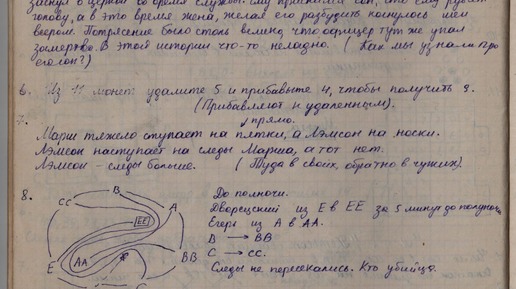 заснул в церкви во время службы. Ему приснился сон, что ему рубят
голову, а в это время жена, желая его разбудить коснулась шеи
веером. Потрясение было столь велико, что офицер тут же упал
замертво. В этой истории что-то неладно. (Как мы узнали про
его сон?)
6. Из 11 монет удалите 5 и прибавьте 4, чтобы получить 9.
(Прибавляют к удаленным).
7. прямо.
Марш тяжело ступает на пятки, а Лэмсон на носки.
Лэмсон наступает на следы Марша, а тот нет.
Лэмсон - следы больше. (Туда в своих, обратно в чужих).
8.
До полночи.
Дворецкий из E в EE за 5 минут до полуночи
Егерь из A в AA.
B → BB
C → CC.
Следы не пересекались. Кто убийца.
B
CC
EE
A
E
AA
BB